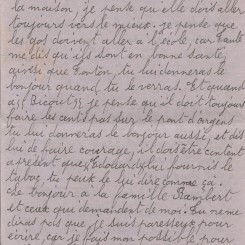 la maison, je pense que elle dois aller
toujours vers le mieux. je pense que
les gos doivent aller a l'école, car faute
me dès qu'ils sont en bonne santé,
ainsi que Lonton, tu lui donneras le
bonjour quand tu le verras. Et quand
a je pense que il doit toujours
faire les cents pas sur le pont d'argens
tu lui donneras le bonjour aussi, et dès
lui de faire courage, il dois être content
a présent que Edouard lui fournis le
tabac, tu peux le lui dire comme ça.
le bonjour a la famille Rambert
et ceux qui demandent de moi. Tu ne me
diras pas que je suis paresseux pour
écrire, car je fais mon possible pour